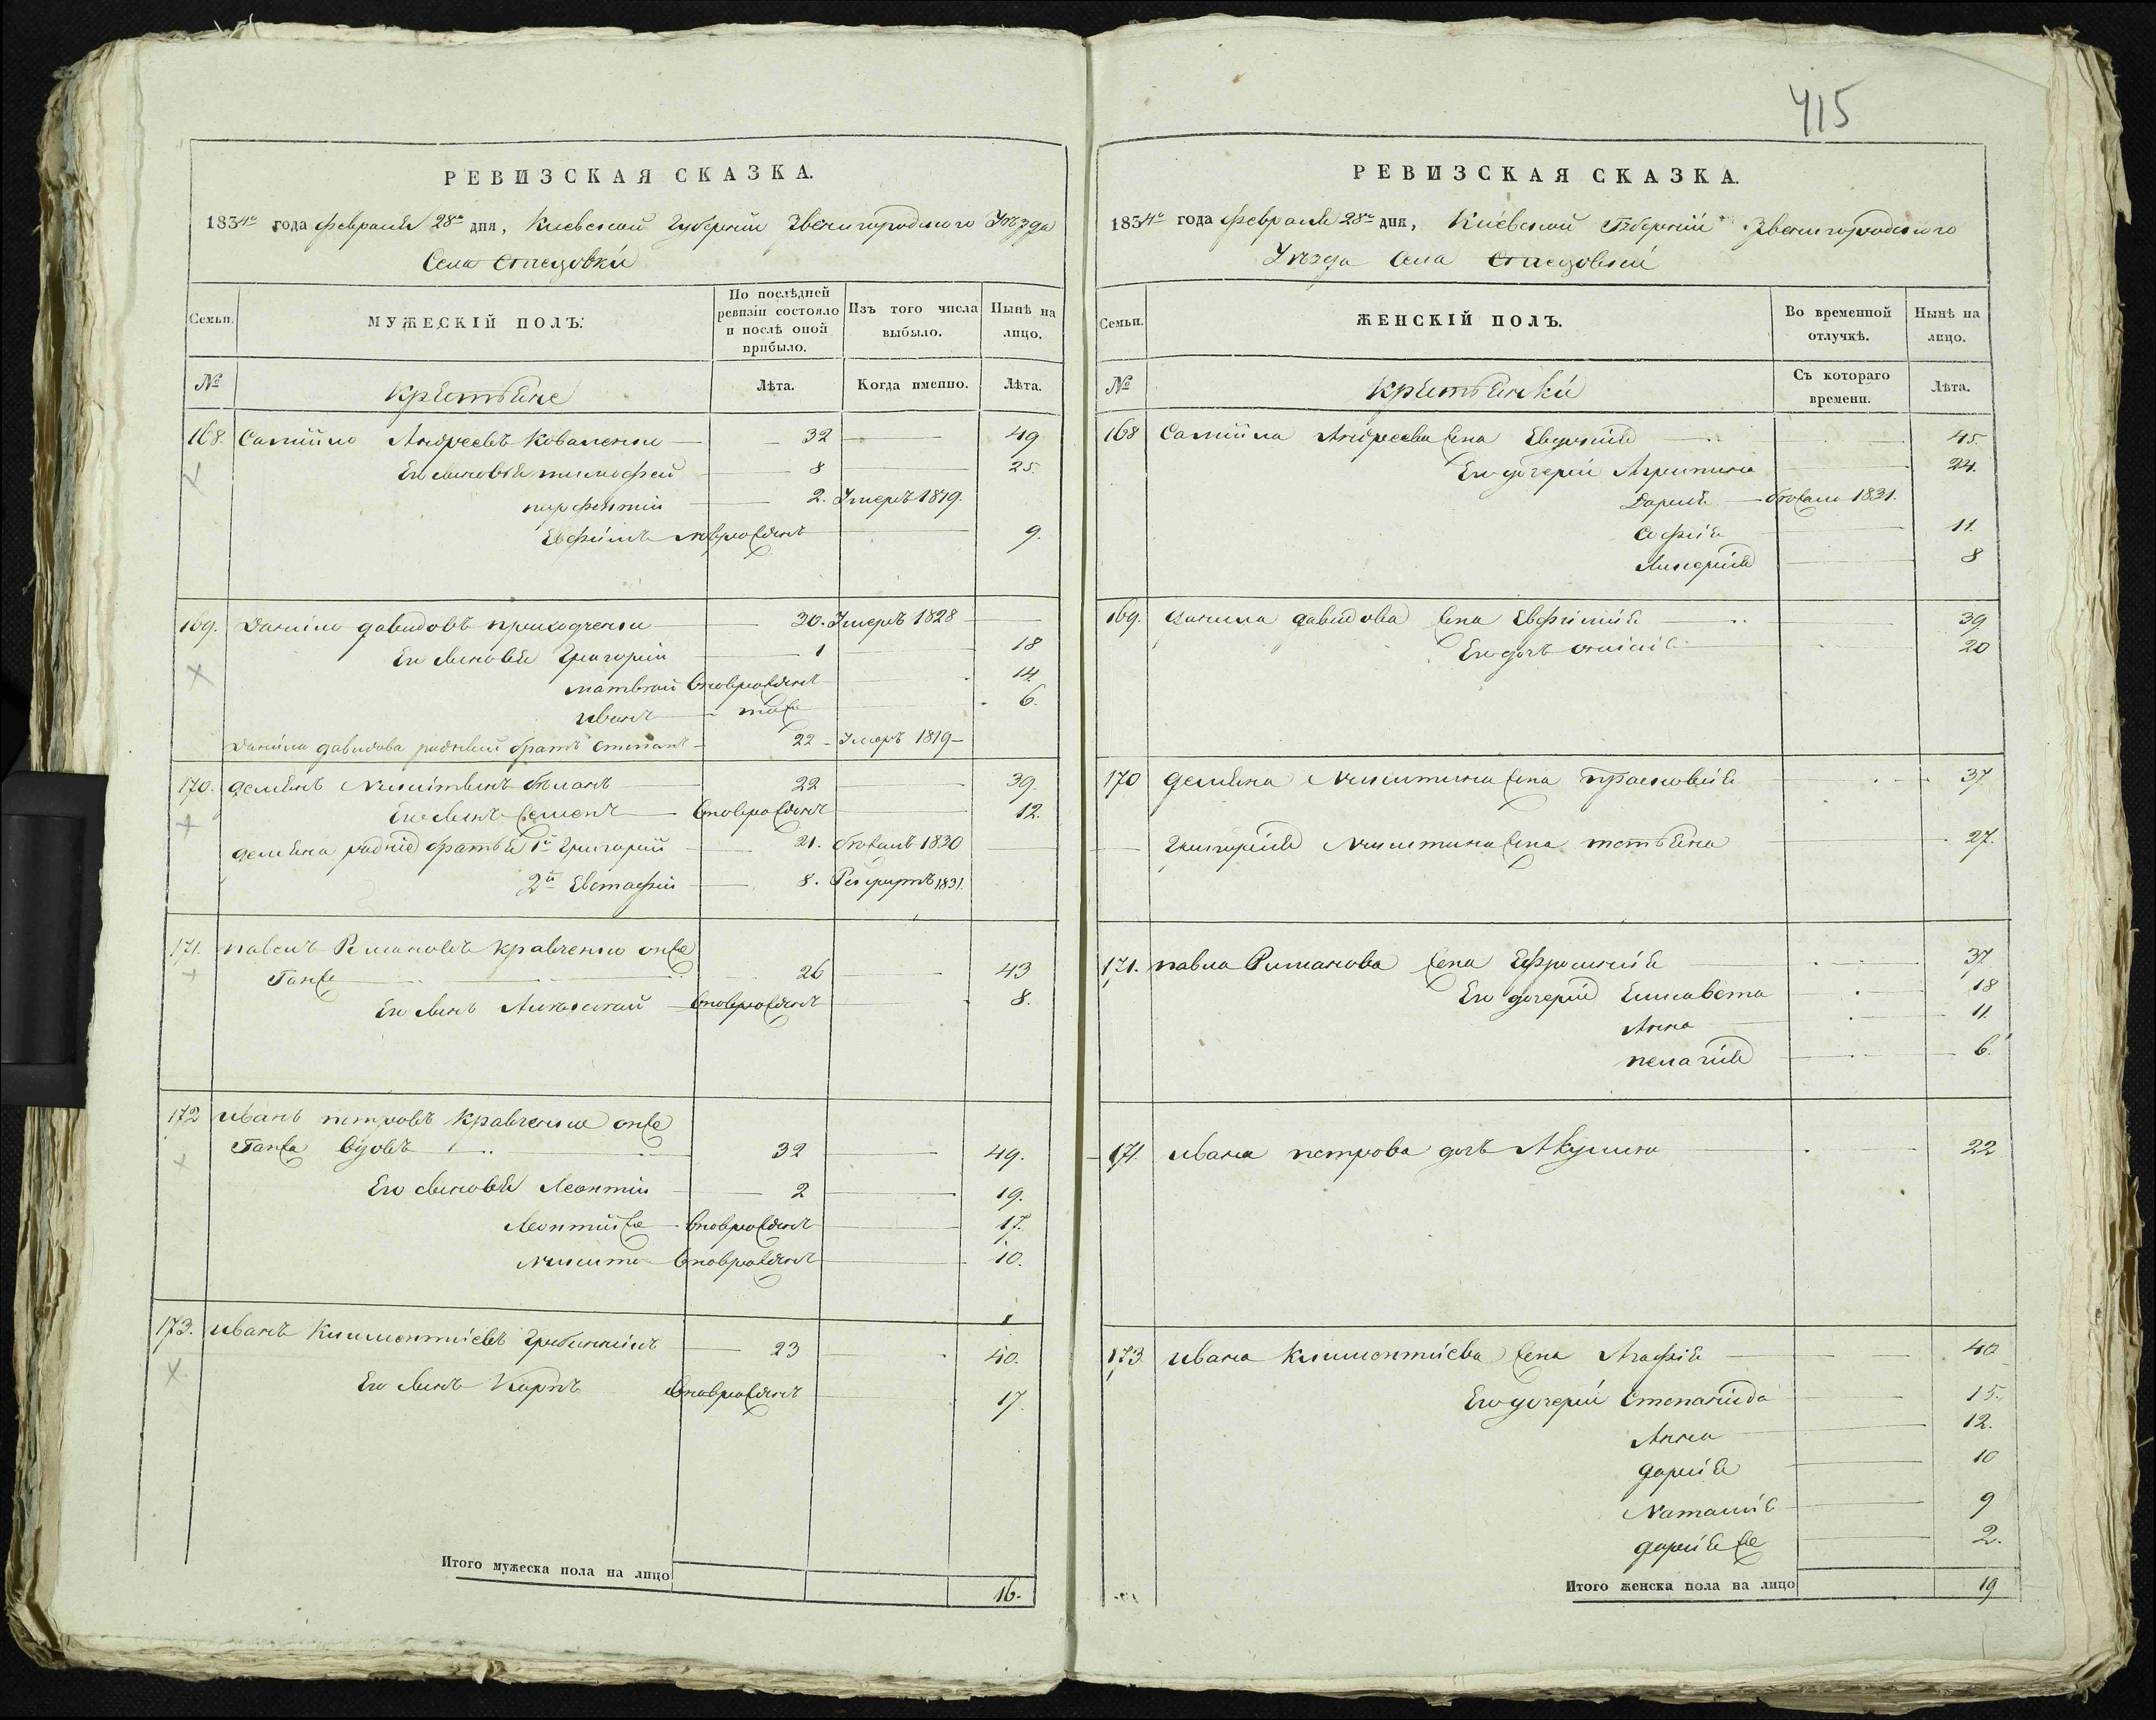 415
РЕВИЗСКАЯ СКАЗКА.
1834го года февраля 28го дня, Киевской Губернии Звенигородского Уѣзда
Села
Семьи.
МУЖЕСКІЙ ПОЛЪ.
По послѣдней ревизіи состояло и послѣ оной прибыло.
Изъ того числа выбыло.
Нынѣ на лицо.
№
Крестьяне
Лѣта.
Когда именно.
Лѣта.
168. Самійло Андреевъ Коваленко 32 49
Его сыновья тимофей 8 25.
парфентий 2. Умеръ 1819.
Евфимъ новрожденъ 9.
169. Данило давидовъ приходченко 30. Умеръ 1828
Его сыновья Григорій 1 18
матвѣй вноврожденъ 14.
иванъ тоже 6.
Данила давидова родный братъ степанъ 22 Умеръ 1819
170. демянъ Никитинъ 22 39.
Его сынъ семенъ вноврожденъ 12.
демяна родніе братья 1й Григорий 21. бѣжалъ 1830
2й Евстафий 8. Рекрутъ 1831.
171. павелъ Романовъ кравченко онже
Ганже 26 43
Его сынъ Алексѣй вноврожденъ 8.
172 иванъ петровъ кравченко онже
Ганжа вдовъ 32 49.
Его сыновья Леонтий 2 19.
Леонтийже вноврожденъ 17.
Никита вноврожденъ 10.
173. иванъ Климентиевъ 23 40.
Его сынъ Карпъ вноврожденъ 17.
Итого мужеска пола на лицо 16.
РЕВИЗСКАЯ СКАЗКА.
1834го года февраля 28го дня, Киевской Губерніи Звенигородского
Уѣзда Села
Семьи.
ЖЕНСКІЙ ПОЛЪ.
Во временной отлучкѣ.
Нынѣ на лицо.
№
Крестьянки
Съ котораго времени.
Лѣта.
168 Самійла Андреева жена Евдокия 45.
Его дочери Агрипина 24.
Дария бѣжала 1831.
Софія 11.
Ликерия 8
169. Данила давидова жена Евфимия 39
Его дочь 20
170 демяна Никитина жена Прасковия 37
Григория Никитина жена тотьяна 27.
171. павла Романова жена Ефросиния 37
Его дочери Елисавета 18
Анна 11.
пелагия 6.
171. ивана петрова дочь Акулина 22
173 ивана Климентиева жена Агафія 40
Его дочери Степанида 15.
Анна 12.
дария 10
Наталия 9
дария же 2.
Итого женска пола на лицо 19